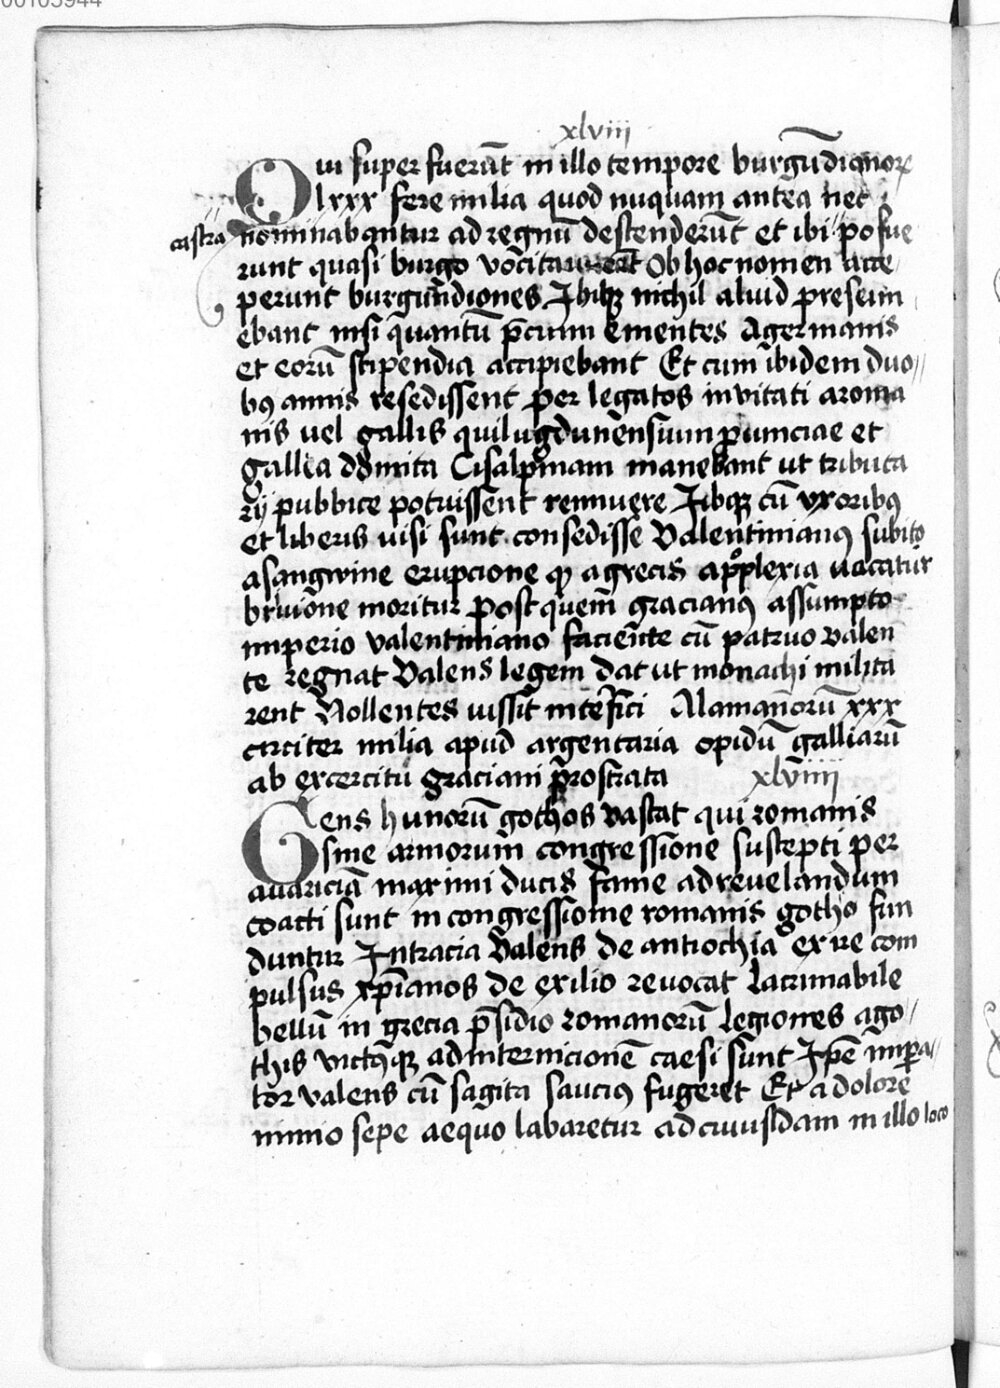 00103944
xlviii
Qui super fuerūt in illo tempore burgūdionorꝝ
lxxx fere milia quod nuquam antea nec
castra nominabantur ad regnū descenderūt et ibi posue
runt quasi burgo vocitaverūt Ob hoc nomen acce
perunt burgundiones Ibiqꝫ nichil aliud presum
ebant nisi quantū p̄cium ementes Agermanis
et eorū stipendia accipiebant Et cum ibidem duo//
bꝯ annis resedissent per legatos invitati aroma
nis uel gallis qui lugdunensium ꝓuinciae et
gallea Cisalpinam manebant ut tributa
rij pubbice potuissent rennuere Ibiqꝫ cū vxoribꝯ
et liberis uisi sunt consedisse Valentinianꝯ subito
asangwine erupcione qͦ agrecis applexia uacatur
briuione moritur post quem̄ gracianꝯ assumpto
imperio valentiniano faciente cū patruo valen
te regnat Valens legem dat ut monachi milita
rent Nollentes iussit int̄efici Alamanorū xxx
circiter milia apud argentaria opidū galliarū
ab excercitu graciani prostrata xlviiii
Gens hunorū gothos vastat qui romanis
sine armorum congressione suscepti per
auariciā maximi ducis fame ad revelandum
coacti sunt in congressiome romanis gotho fun
duntur Intracia Valens de antiochia exire com
pulsus xp̄ianos de exilio reuocat Lacrimabile
bellū in grecia p̄sidio romanorū legiones ago//
this ad internicionē caesi sunt Ip̄e imp̄a//
tor valens cū sagita sauciꝯ fugeret Et a dolore
nimio sepe aequo labaretur ad cuiusdam in illo loco